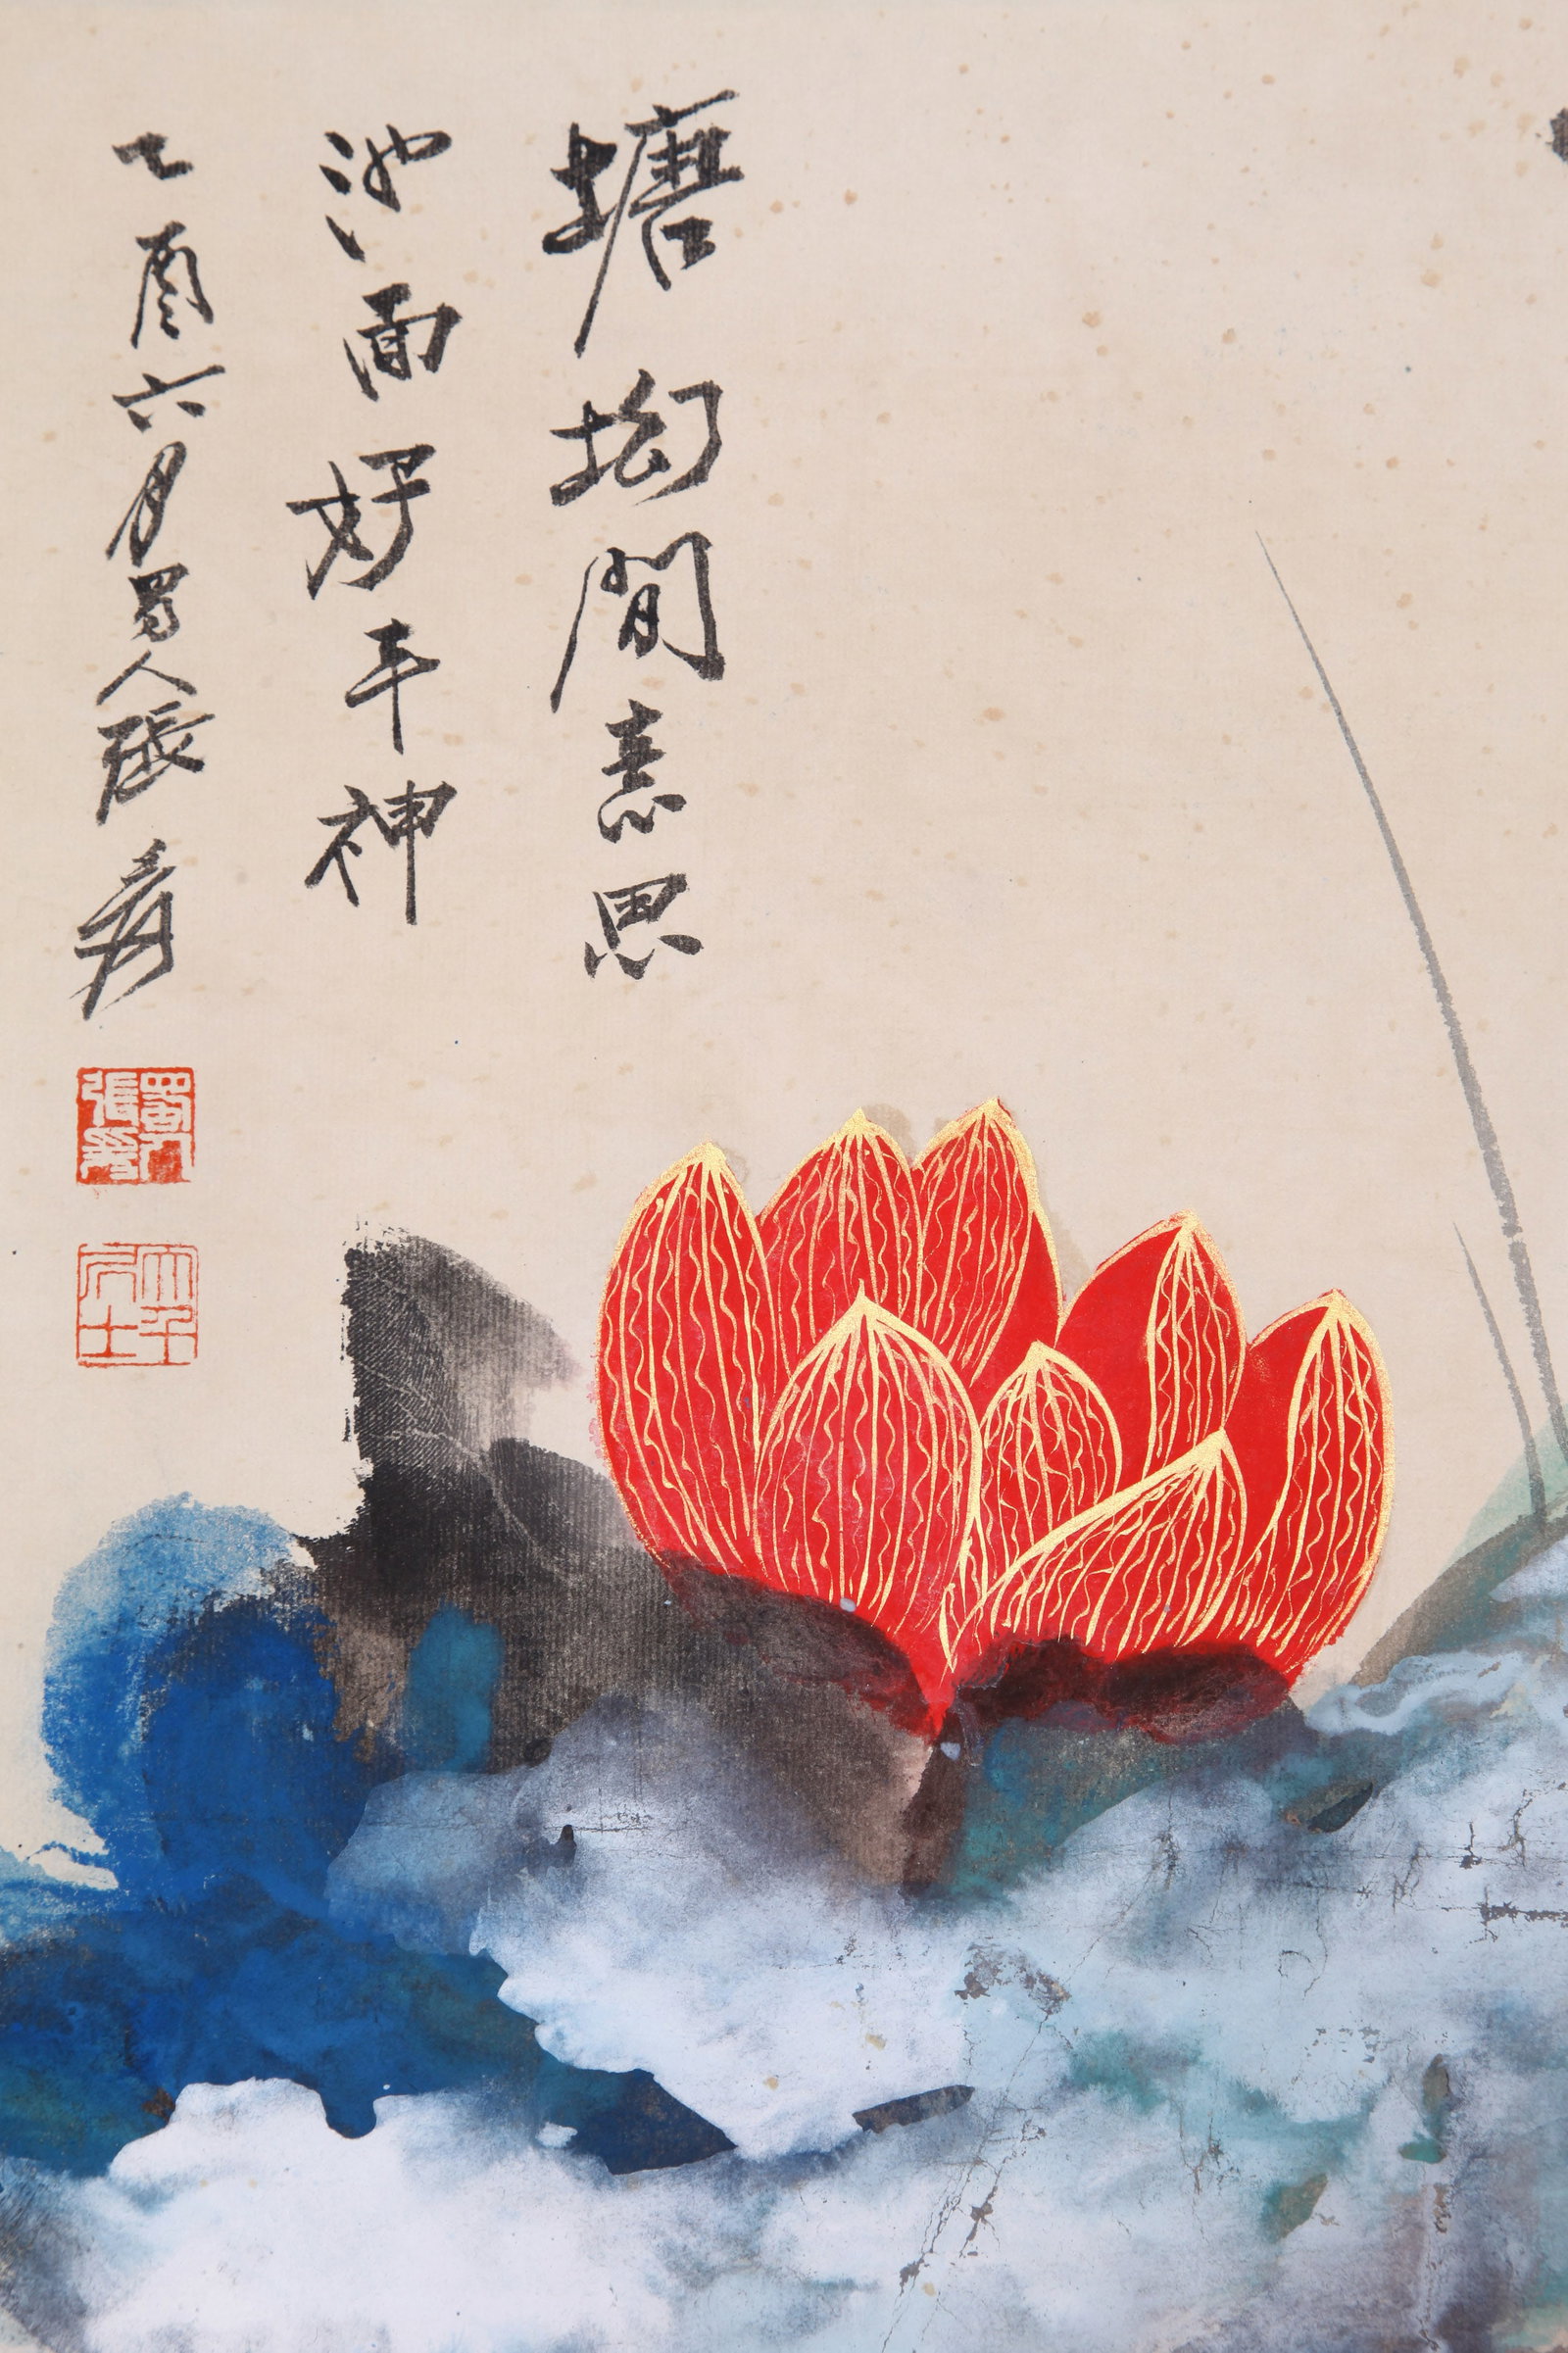 塘坳閒意思
池面好丰神
乙酉六月蜀人張爰
蜀人張爰
大千居士